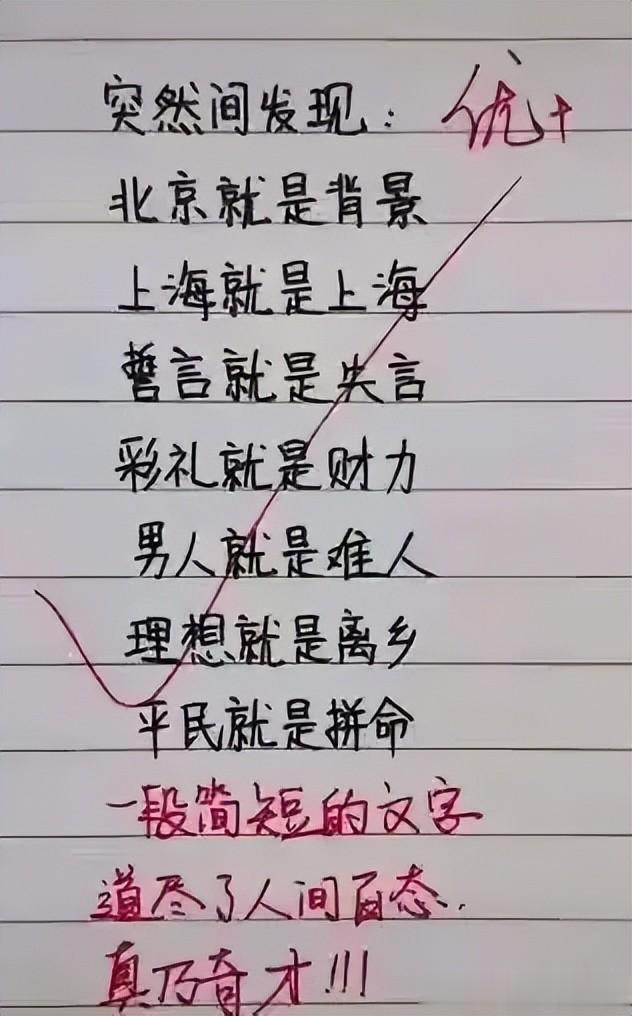 突然间发现： 优+
北京就是背景
上海就是上海
誓言就是失言
彩礼就是财力
男人就是难人
理想就是离乡
平民就是拼命
一段简短的文字
道尽了人间百态.
真乃奇才!!!